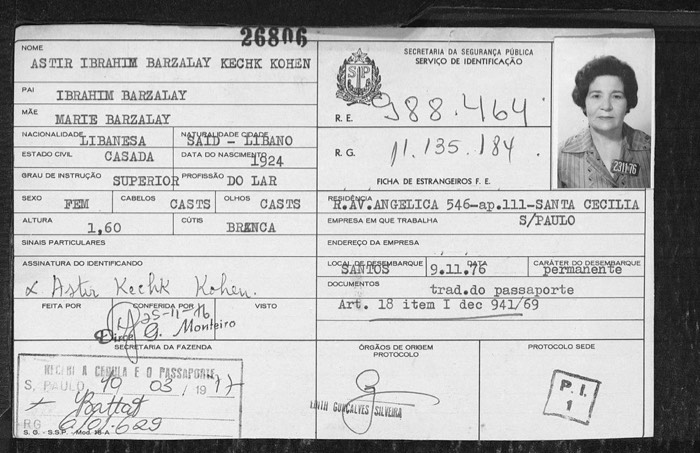 26806
NOME
ASTIR IBRAHIM BARZALAY KECHK KOHEN
PAI
IBRAHIM BARZALAY
MÃE
MARIE BARZALAY
NACIONALIDADE LIBANESA NATURALIDADE CIDADE SAID - LIBANO
ESTADO CIVIL CASADA DATA DO NASCIMENTO 1924
GRAU DE INSTRUÇÃO SUPERIOR PROFISSÃO DO LAR
SEXO FEM CABELOS CASTS OLHOS CASTS
ALTURA 1,60 CÚTIS BRANCA
SINAIS PARTICULARES
ASSINATURA DO IDENTIFICANDO
x Astir Kechk Kohen.
FEITA POR CONFERIDA POR VISTO
25-11-76
Dirce G. Monteiro
SECRETARIA DA FAZENDA
RECEBI A CEDULA E O PASSAPORTE
S. PAULO, 10 / 03 / 1977
Battat
RG 6101.629
S. G. - S.S.P. - Mod. 18-A
SECRETARIA DA SEGURANÇA PÚBLICA
SERVIÇO DE IDENTIFICAÇÃO
SP
R. E. 988.464
R. G. 11.135.184
FICHA DE ESTRANGEIROS F. E.
2311 76
RESIDÊNCIA
R.AV.ANGELICA 546-ap.111-SANTA CECILIA
EMPRESA EM QUE TRABALHA S/PAULO
ENDEREÇO DA EMPRESA
LOCAL DE DESEMBARQUE SANTOS DATA 9.11.76 CARÁTER DO DESEMBARQUE permanente
DOCUMENTOS trad.do passaporte
Art. 18 item I dec 941/69
ÓRGÃOS DE ORIGEM
PROTOCOLO
GONÇALVES SILVEIRA
PROTOCOLO SEDE
P. I.
1